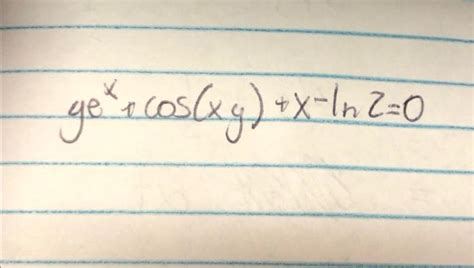 ye^x + cos(xy) + x - ln 2 = 0